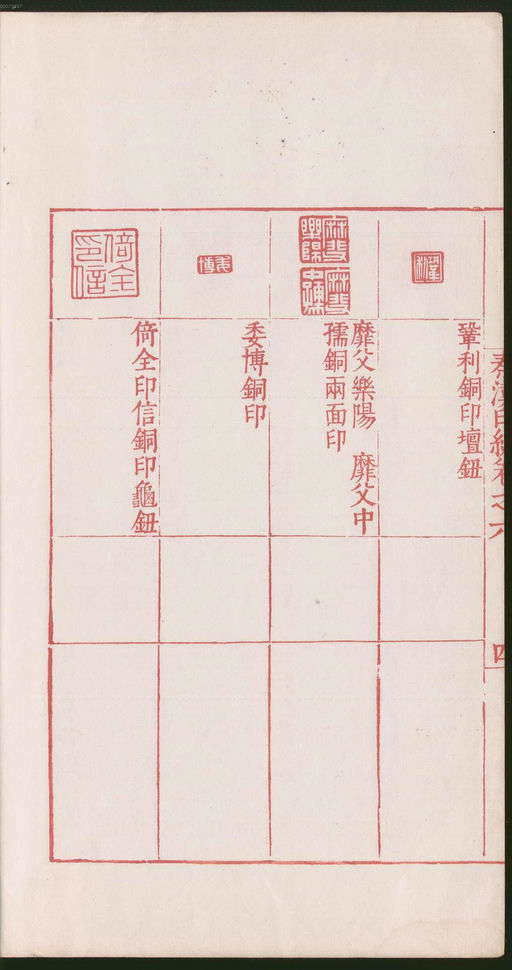 秦漢印統卷之六
四
鞏利銅印壇鈕
靡父樂陽　靡父中
孺銅兩面印
委博銅印
倚全印信銅印龜鈕